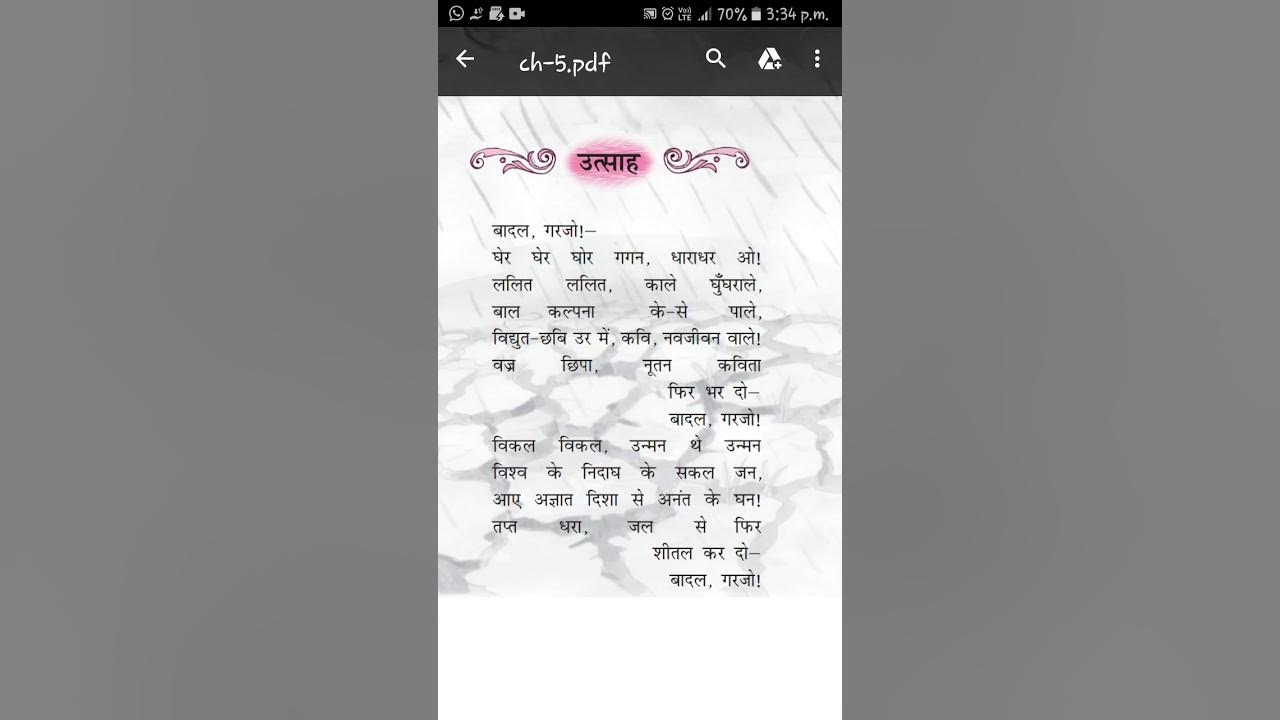 Vo)) LTE 70% 3:34 p.m.
ch-5.pdf
उत्साह
बादल, गरजो!–
घेर घेर घोर गगन, धाराधर ओ!
ललित ललित, काले घुँघराले,
बाल कल्पना के-से पाले,
विद्युत-छबि उर में, कवि, नवजीवन वाले!
वज्र छिपा, नूतन कविता
फिर भर दो–
बादल, गरजो!
विकल विकल, उन्मन थे उन्मन
विश्व के निदाघ के सकल जन,
आए अज्ञात दिशा से अनंत के घन!
तप्त धरा, जल से फिर
शीतल कर दो–
बादल, गरजो!